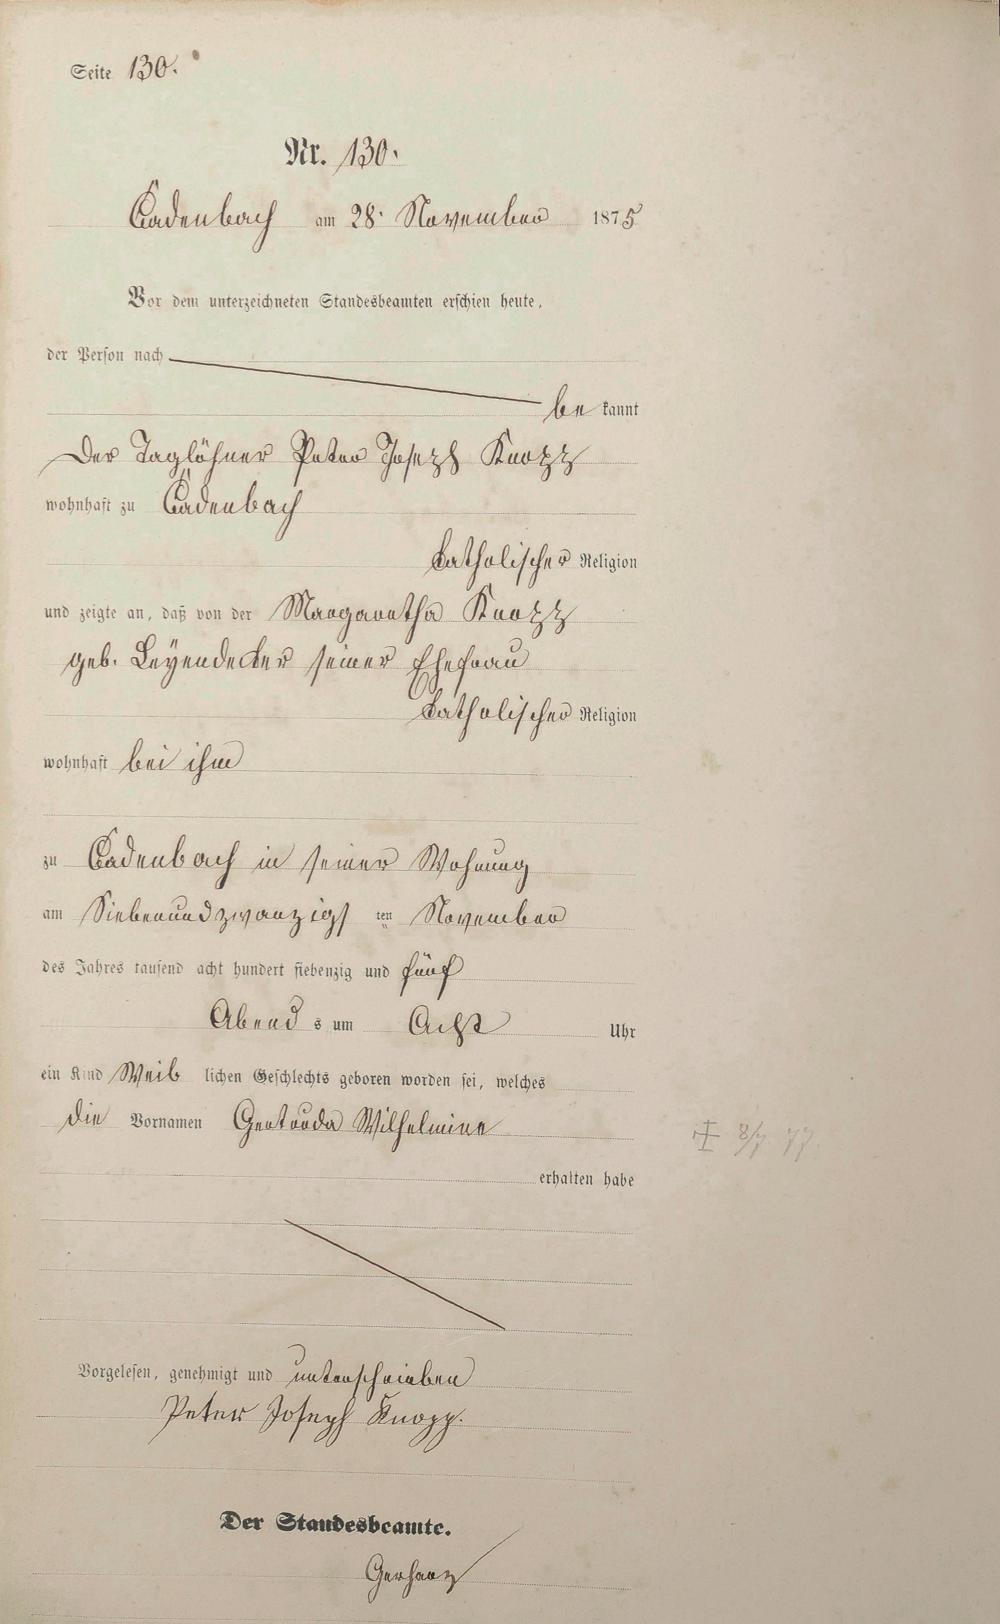 Seite 130.
Nr. 130.
Cadenbach am 28. November 1875
Vor dem unterzeichneten Standesbeamten erschien heute,
der Person nach
be kannt
Der Taglöhner Peter Joseph Knopp
wohnhaft zu Cadenbach
katholischer Religion
und zeigte an, daß von der Margaretha Knopp
geb. Leyendecker seiner Ehefrau
katholischer Religion
wohnhaft bei ihm
zu Cadenbach in seiner Wohnung
am Siebenundzwanzigs ten November
des Jahres tausend acht hundert siebenzig und fünf
Abend s um Acht Uhr
ein Kind Weib lichen Geschlechts geboren worden sei, welches
die Vornamen Gertruda Wilhelmine
‡ 8/7 77.
erhalten habe
Vorgelesen, genehmigt und unterschrieben
Peter Joseph Knopp.
Der Standesbeamte.
Gerharz